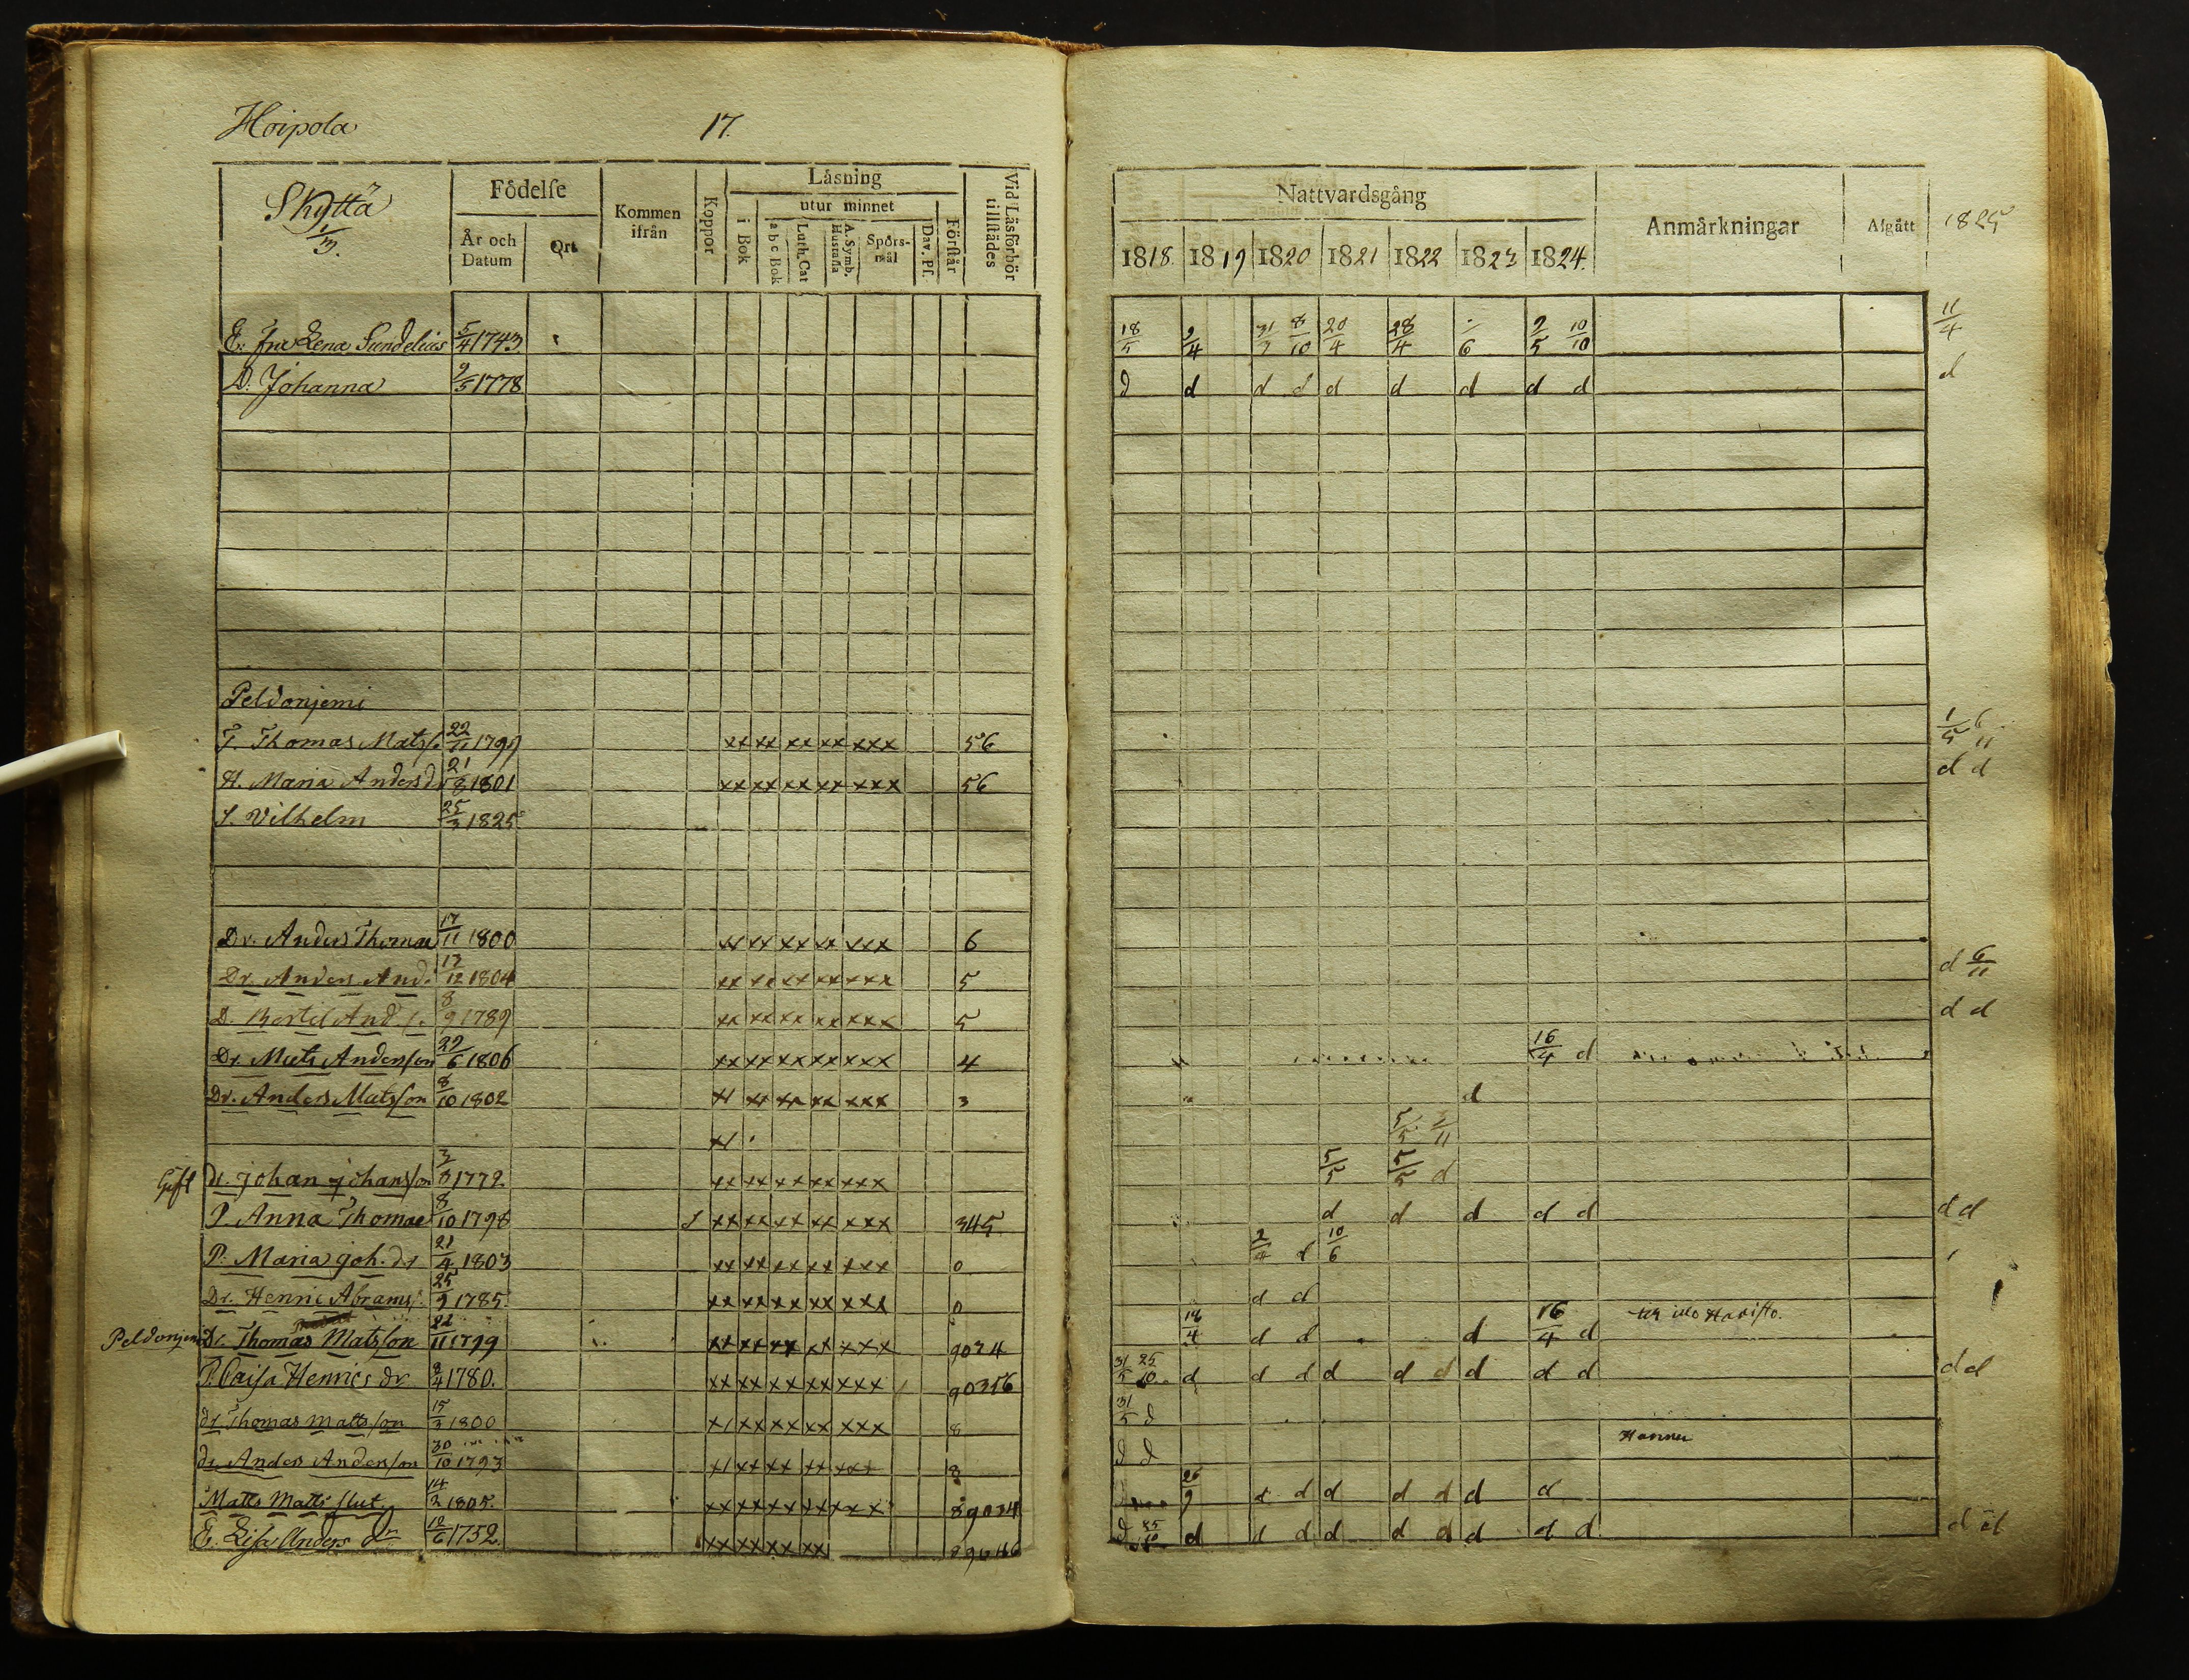 Hoipola 17.
Skyttä Födelse Kommen ifrån Koppor Läsning Vid Läsförhör tillstädes
1/3. År och Datum Ort i Bok utur minnet Förstår
a b c Bok Luth. Cat A. Symb. Hustafla Spörsmål Dav. Ps.
E. fru Lena Sundelius 5/4 1743
D. Johanna 9/5 1778
Peldonjemi
T. Thomas Mats s. 22/11 1799 xx xx xx xx xxx 56
H. Maria Anders d. 21/8 1801 xx xx xx xx xxx 56
S. Vilhelm 25/3 1825
Dr. Anders Thomae 17/11 1800 xx xx xx xx xxx 6
Dr. Anders And. 13/12 1804 xx xx xx xx xxx 5
D. Bertil And s. 8/9 1789 xx xx xx xx xxx 5
Dr. Mats Andersson 29/6 1806 xx xx xx xx xxx 4
Dr. Anders Matsson 8/10 1802 x/ xx xx xx xxx 3
x/
Gift dr. Johan Johansson 3/3 1772 xx xx xx xx xxx
P. Anna Thomae 8/10 1798 / xx xx xx xx xxx 345
P. Maria Joh. dr 21/4 1803 xx xx xx xx xxx 0
Dr. Henric Abrams s. 25/9 1785 xx xx xx xx xxx 0
Peldonjemi Dr. Thomas Matsson 22/11 1799 xx xx xx xx xxx 9034
P. Caisa Henrics dr 8/4 1780. xx xx xx xx xxx 90356
dr Thomas Mattsson 15/3 1800 x/ xx xx xx xxx 8
dr. Anders Andersson 30/10 1793 x/ xx xx xx xxx 8
Matts Matts 14/2 1805. xx xx xx xx xxx 89034
E. Lisa Anders dr 12/6 1752. xx xx xx xx
Nattvardsgång Anmärkningar Afgått 1825
1818. 1819 1820 1821 1822 1823 1824.
18/5 9/4 31/3 8/10 20/4 28/4 9/5 10/10 11/4
d d d d d d d d d d
1/5 6/11
d d
d 6/11
d d
16/4 d
d
5/5 3/11
5/5 5/5 d
d d d d d d d
2/4 d 10/6
d d
18/4 d d d 16/4 d
31/5 25/10 d d d d d d d d d d d
31/5 d
d d Hannu
26/9 d d d d d d d
d 25/10 d d d d d d d d d d d